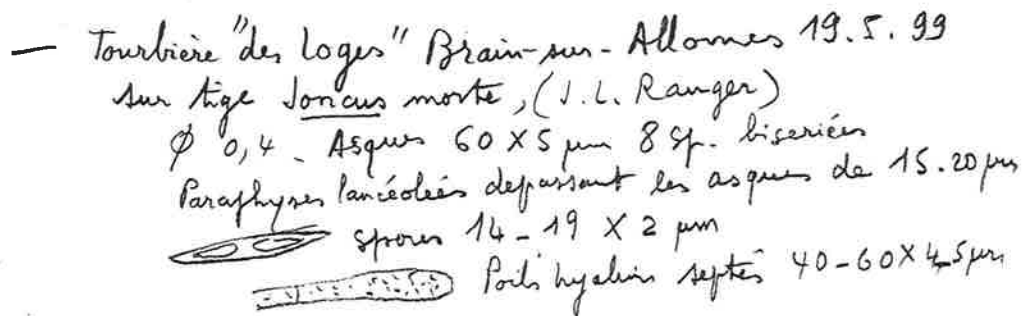 — Tourbière "des Loges" Brain-sur-Allonnes 19.5.99
sur tige Joncus morte, (J.L. Ranger)
Ø 0,4 - Asques 60 X 5 µm 8 sp. bisériées
Paraphyses lancéolées dépassant les asques de 15-20 µm
spores 14-19 X 2 µm
Poils hyalins septés 40-60 X 4,5 µm